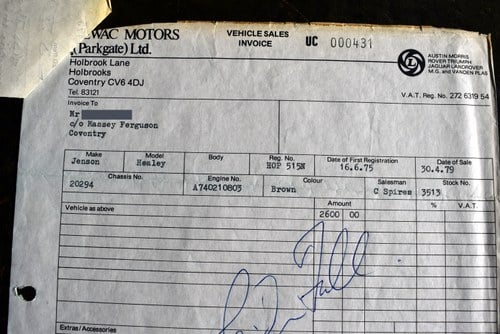 WAC MOTORS
(Parkgate) Ltd.
Holbrook Lane
Holbrooks
Coventry CV6 4DJ
Tel. 83121
VEHICLE SALES
INVOICE
UC 000431
AUSTIN MORRIS
ROVER TRIUMPH
JAGUAR LANDROVER
M.G. and VANDEN PLAS
V.A.T. Reg. No. 272 6319 54
Invoice To
Mr
c/o Massey Ferguson
Coventry
Make Model Body Reg. No. Date of First Registration Date of Sale
Jenson Healey HOP 515N 16.6.75 30.4.79
Chassis No. Engine No. Colour Salesman Stock No.
20294 A740210803 Brown C Spires 3513
Amount % V.A.T.
Vehicle as above 2600 00
Paid In Full
Extras/Accessories